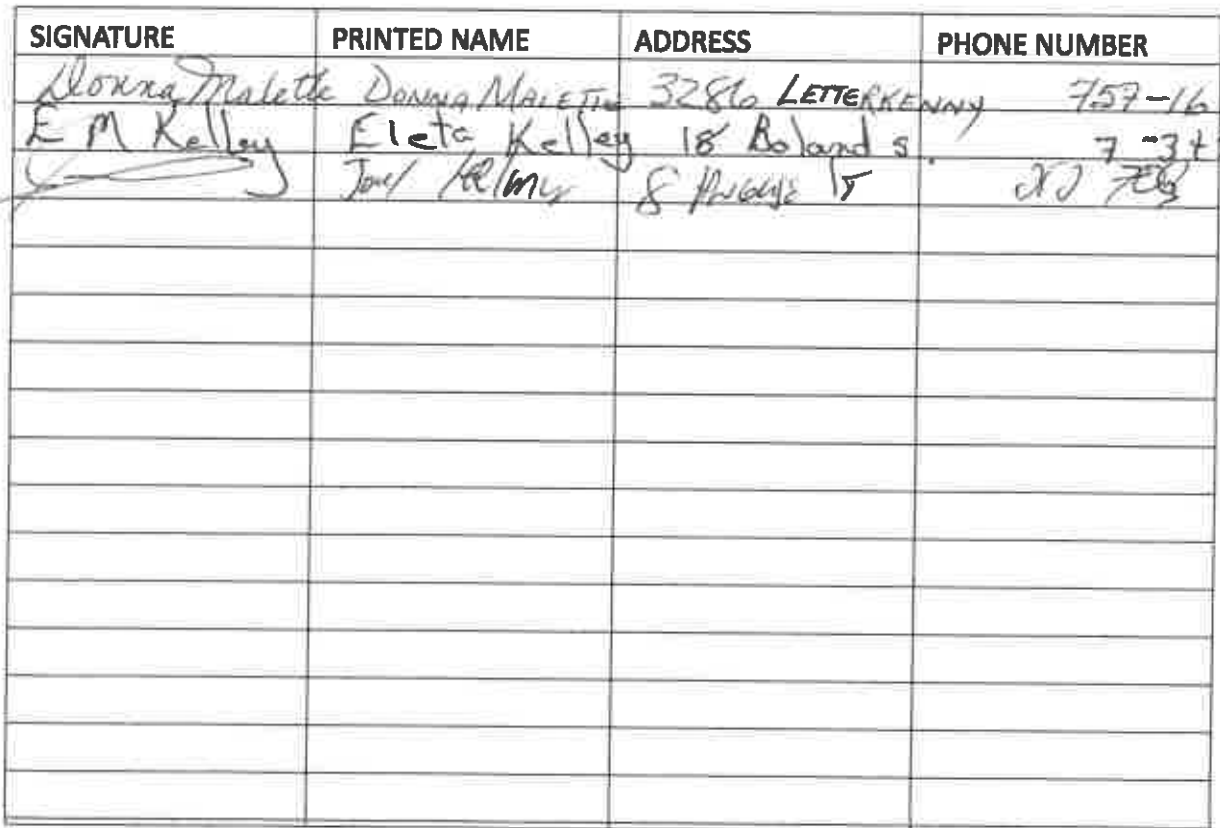 SIGNATURE PRINTED NAME ADDRESS PHONE NUMBER
Donna Malette DONNA MALETTE 3286 LETTERKENNY 757-16
E M Kelley Eleta Kelley 18 Boland s. 7 -3
8